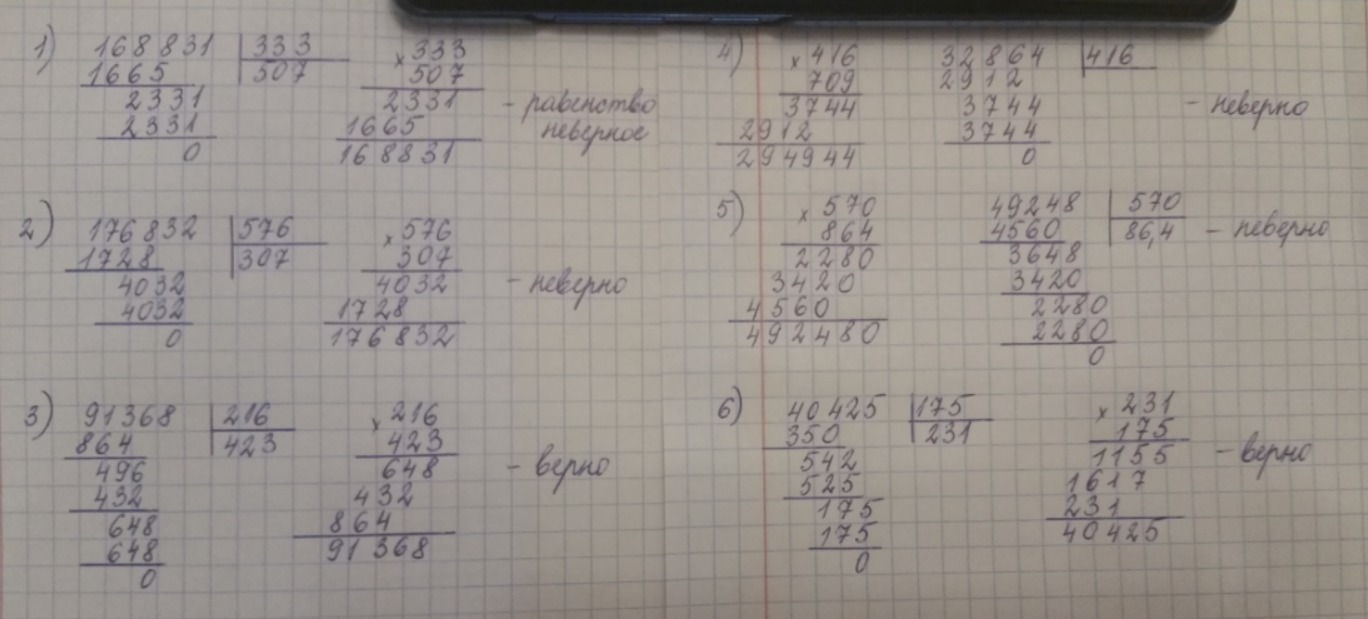 1) 168831 | 333 × 333
1665 507 507
2331 2331 - равенство
2331 1665 неверное
0 168831
2) 176832 | 576 × 576
1728 307 307
4032 4032 - неверно
4032 1728
0 176832
3) 91368 | 216 × 216
864 423 423
496 648 - верно
432 432
648 864
648 91368
0
4) × 416 32864 | 416
709 2912
3744 3744 - неверно
2912 3744
294944 0
5) × 570 49248 | 570
864 4560 86,4 - неверно
2280 3648
3420 3420
4560 2280
492480 2280
0
6) 40425 | 175 × 231
350 231 175
542 1155 - верно
525 1617
175 231
175 40425
0